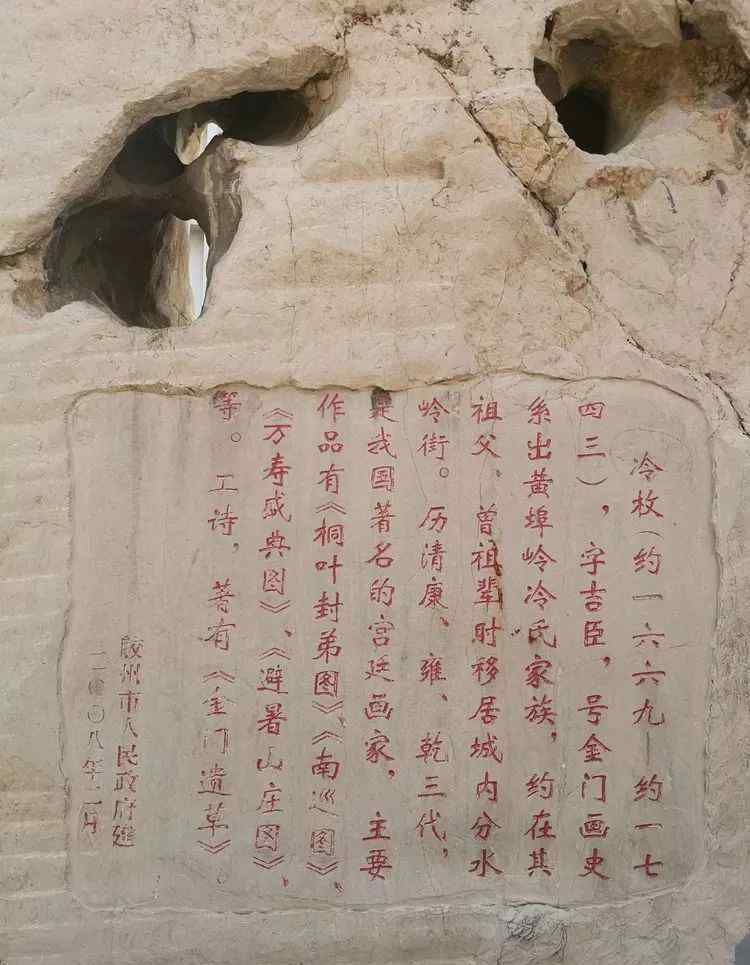 冷枚(约一六六九—约一七
四三),字吉臣,号金门画史
系出黄埠岭冷氏家族,约在其
祖父、曾祖辈时移居城内分水
岭街。历清康、雍、乾三代,
是我国著名的宫廷画家,主要
作品有《桐叶封弟图》《南巡图》、
《万寿盛典图》、《避暑山庄图》、
等。工诗,著有《金门遗草》。
胶州市人民政府建
二〇〇八年二月